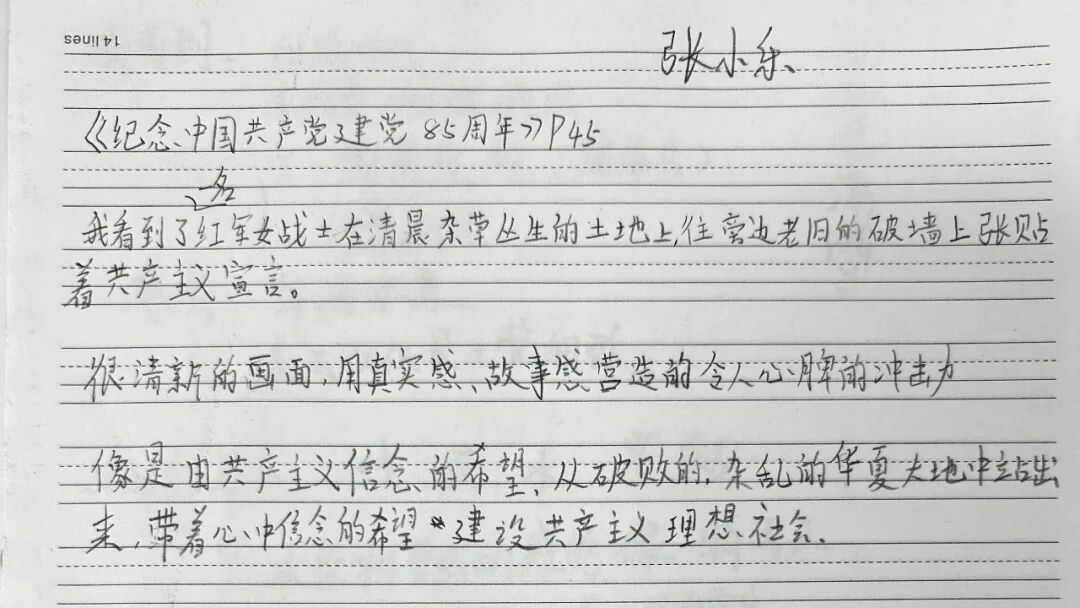 14 lines
张小乐
《纪念中国共产党建党85周年》P45
一名
我看到了红军女战士在清晨杂草丛生的土地上,往旁边老旧的破墙上张贴
着共产主义宣言。
很清新的画面,用真实感、故事感营造的令人心脾的冲击力
像是由共产主义信念的希望,从破败的,杂乱的华夏大地中站出
来,带着心中信念的希望建设共产主义理想社会.